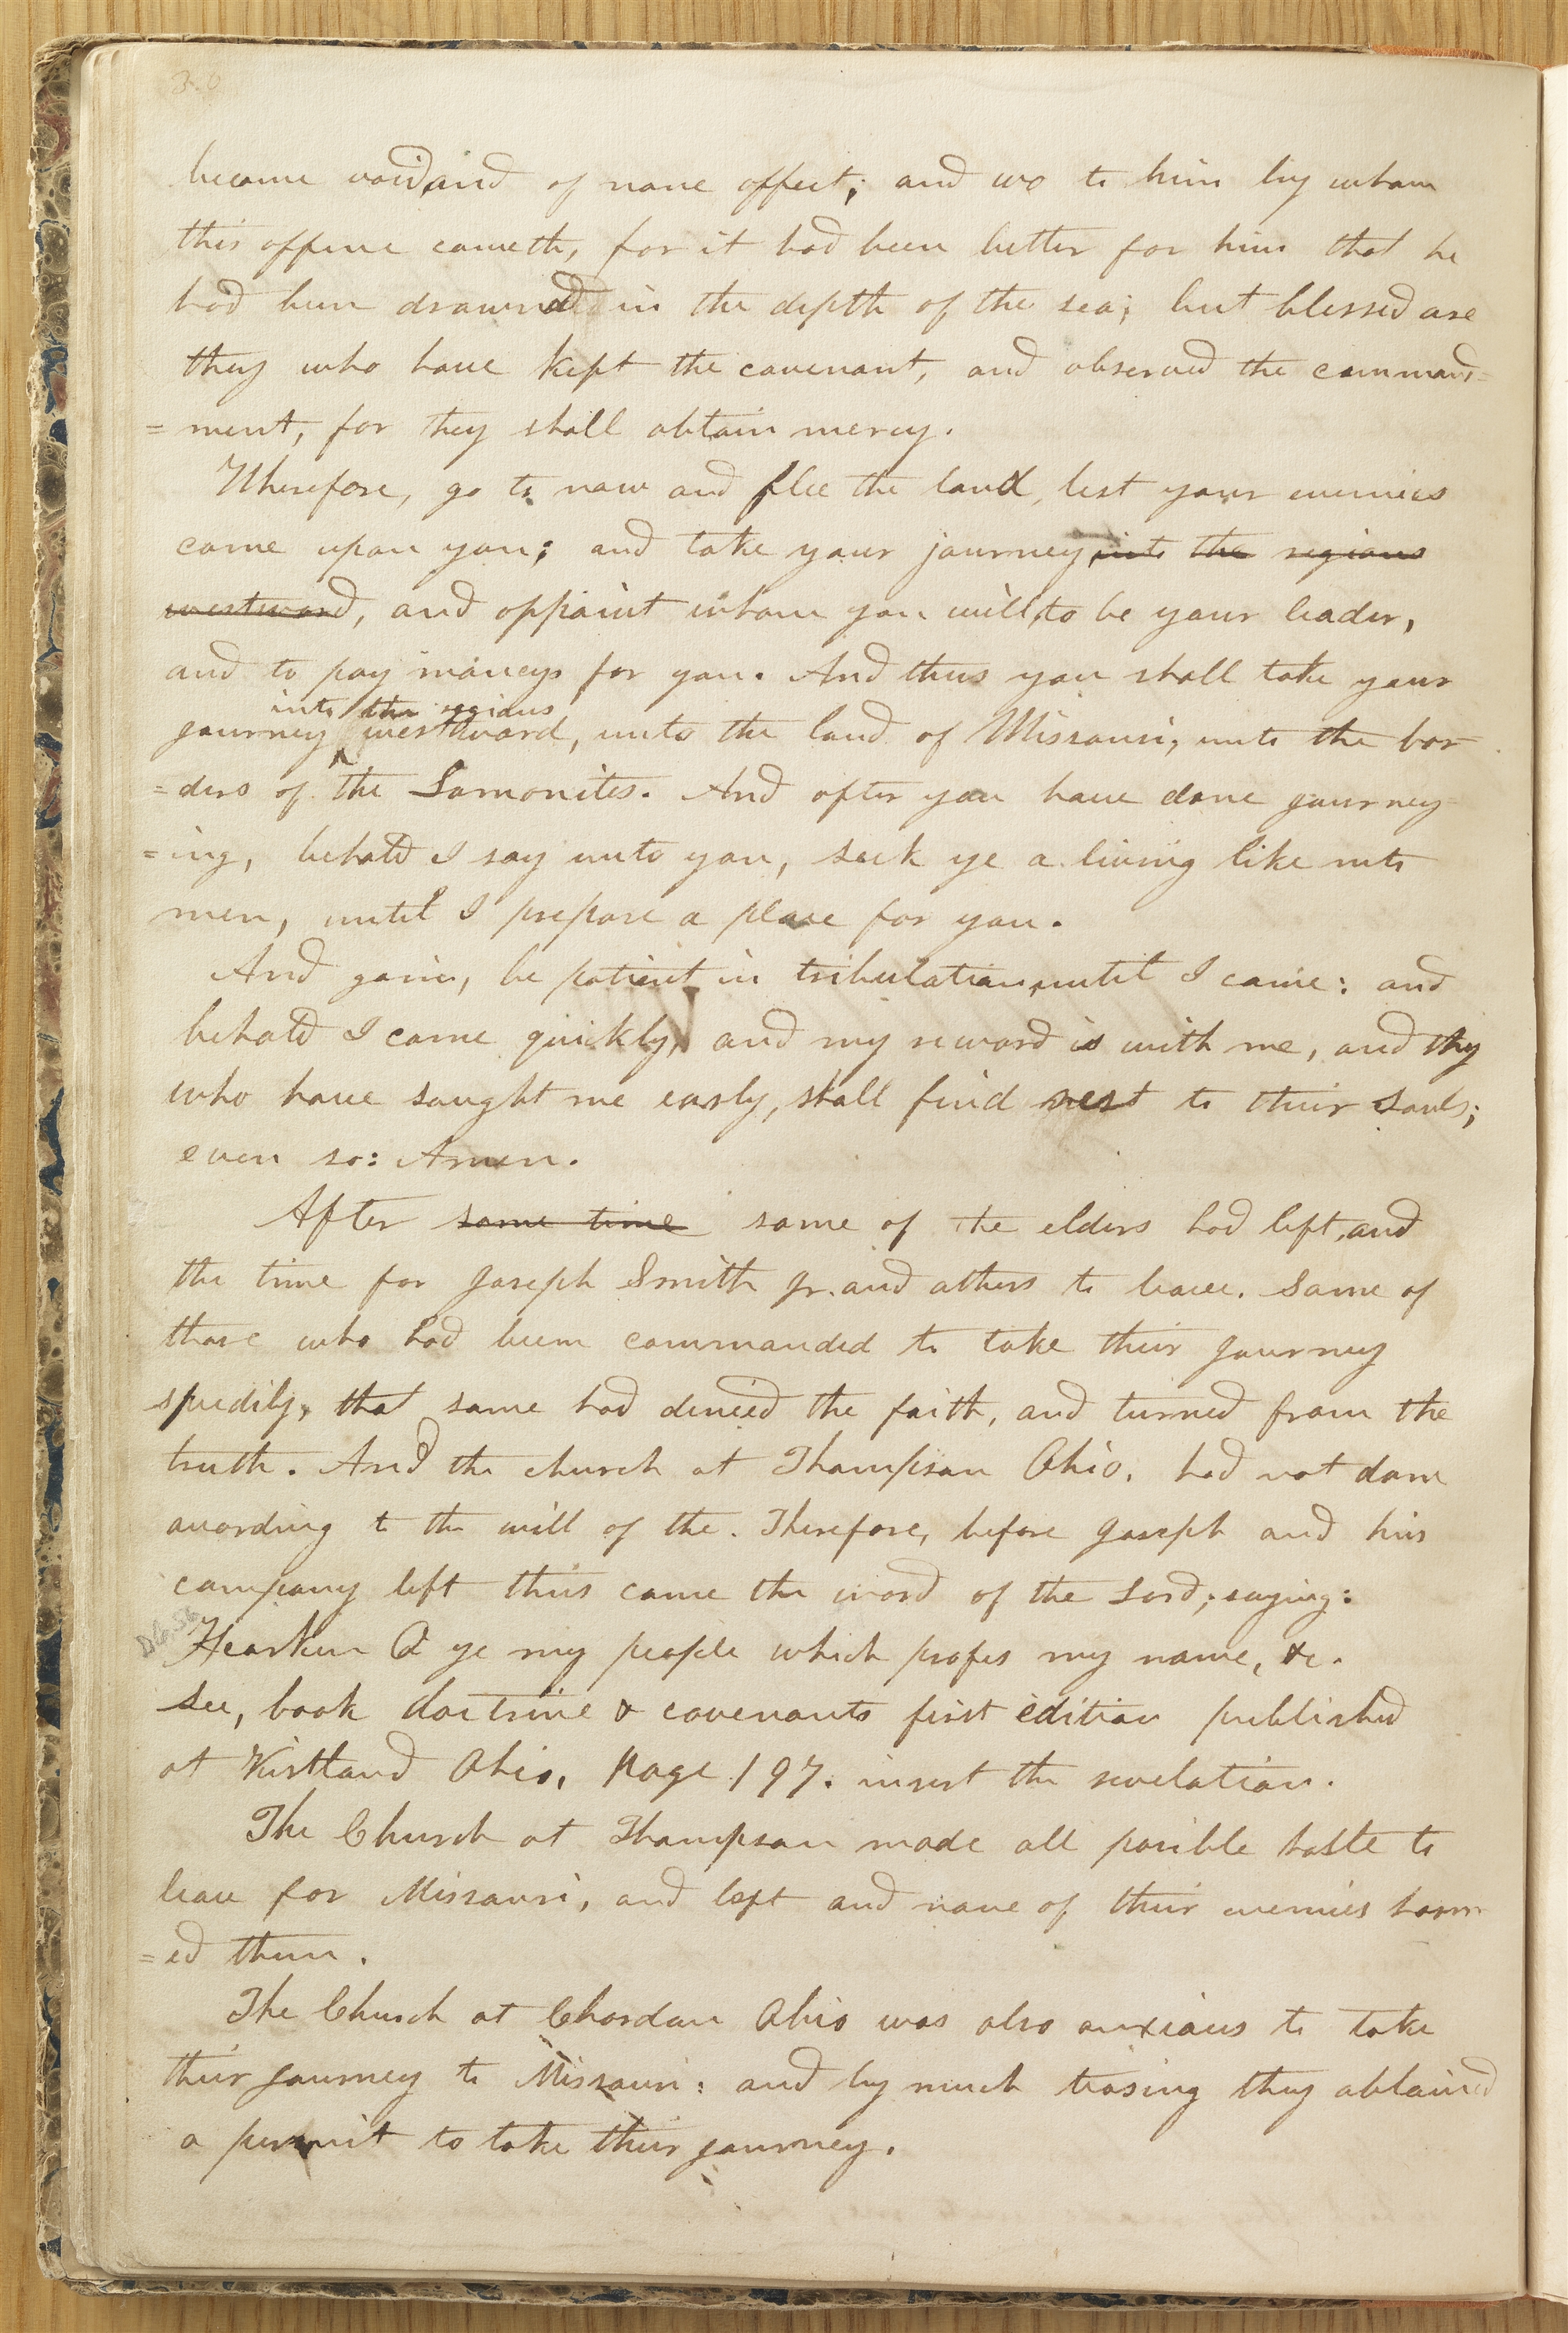 30
become void, and of none effect; and wo to him by whom
this offence cometh, for it had been better for him that he
had been drownd in the depth of the sea; but blessed are
they who have kept the covenant, and observed the command=
=ment, for they shall obtain mercy.
Wherefore, go to now and flee the land, lest your enemies
come upon you; and take your journey, into the regions
westward, and appoint whom you will, to be your leader,
and to pay moneys for you. And thus you shall take your
into the regions
journey westward, unto the land of Missouri, unto the bor=
=ders of the Lamonites. And after you have done journey=
=ing, behold I say unto you, seek ye a living like unto
men, until I prepare a place for you.
And gain, be patient in tribulation, until I come: and
behold I come quickly, and my reward is with me, and they
who have saught me early, shall find rest to their souls;
even so: Amen.
After some time some of the elders had left, and
the time for Joseph Smith Jr. and others to leave. Some of
those who had been commanded to take their journey
speedily, that some had denied the faith, and turned from the
truth. And the church at Thompson Ohio. had not done
according to the will of the. Therefore, before Joseph and his
company left thus came the word of the Lord; saying:
D&C 56
Hearken O ye my people which profes my name, &c.
see, book doctrine & covenants first edition published
at Kirtland Ohio, page 197. insert the revelation.
The Church at Thompson made all posible haste to
leave for Missouri, and left and none of their enemies harm
=ed them.
The Church at Chardon Ohio was also anxious to take
their journey to Missouri: and by much teasing they obtained
a permit to take their journey.